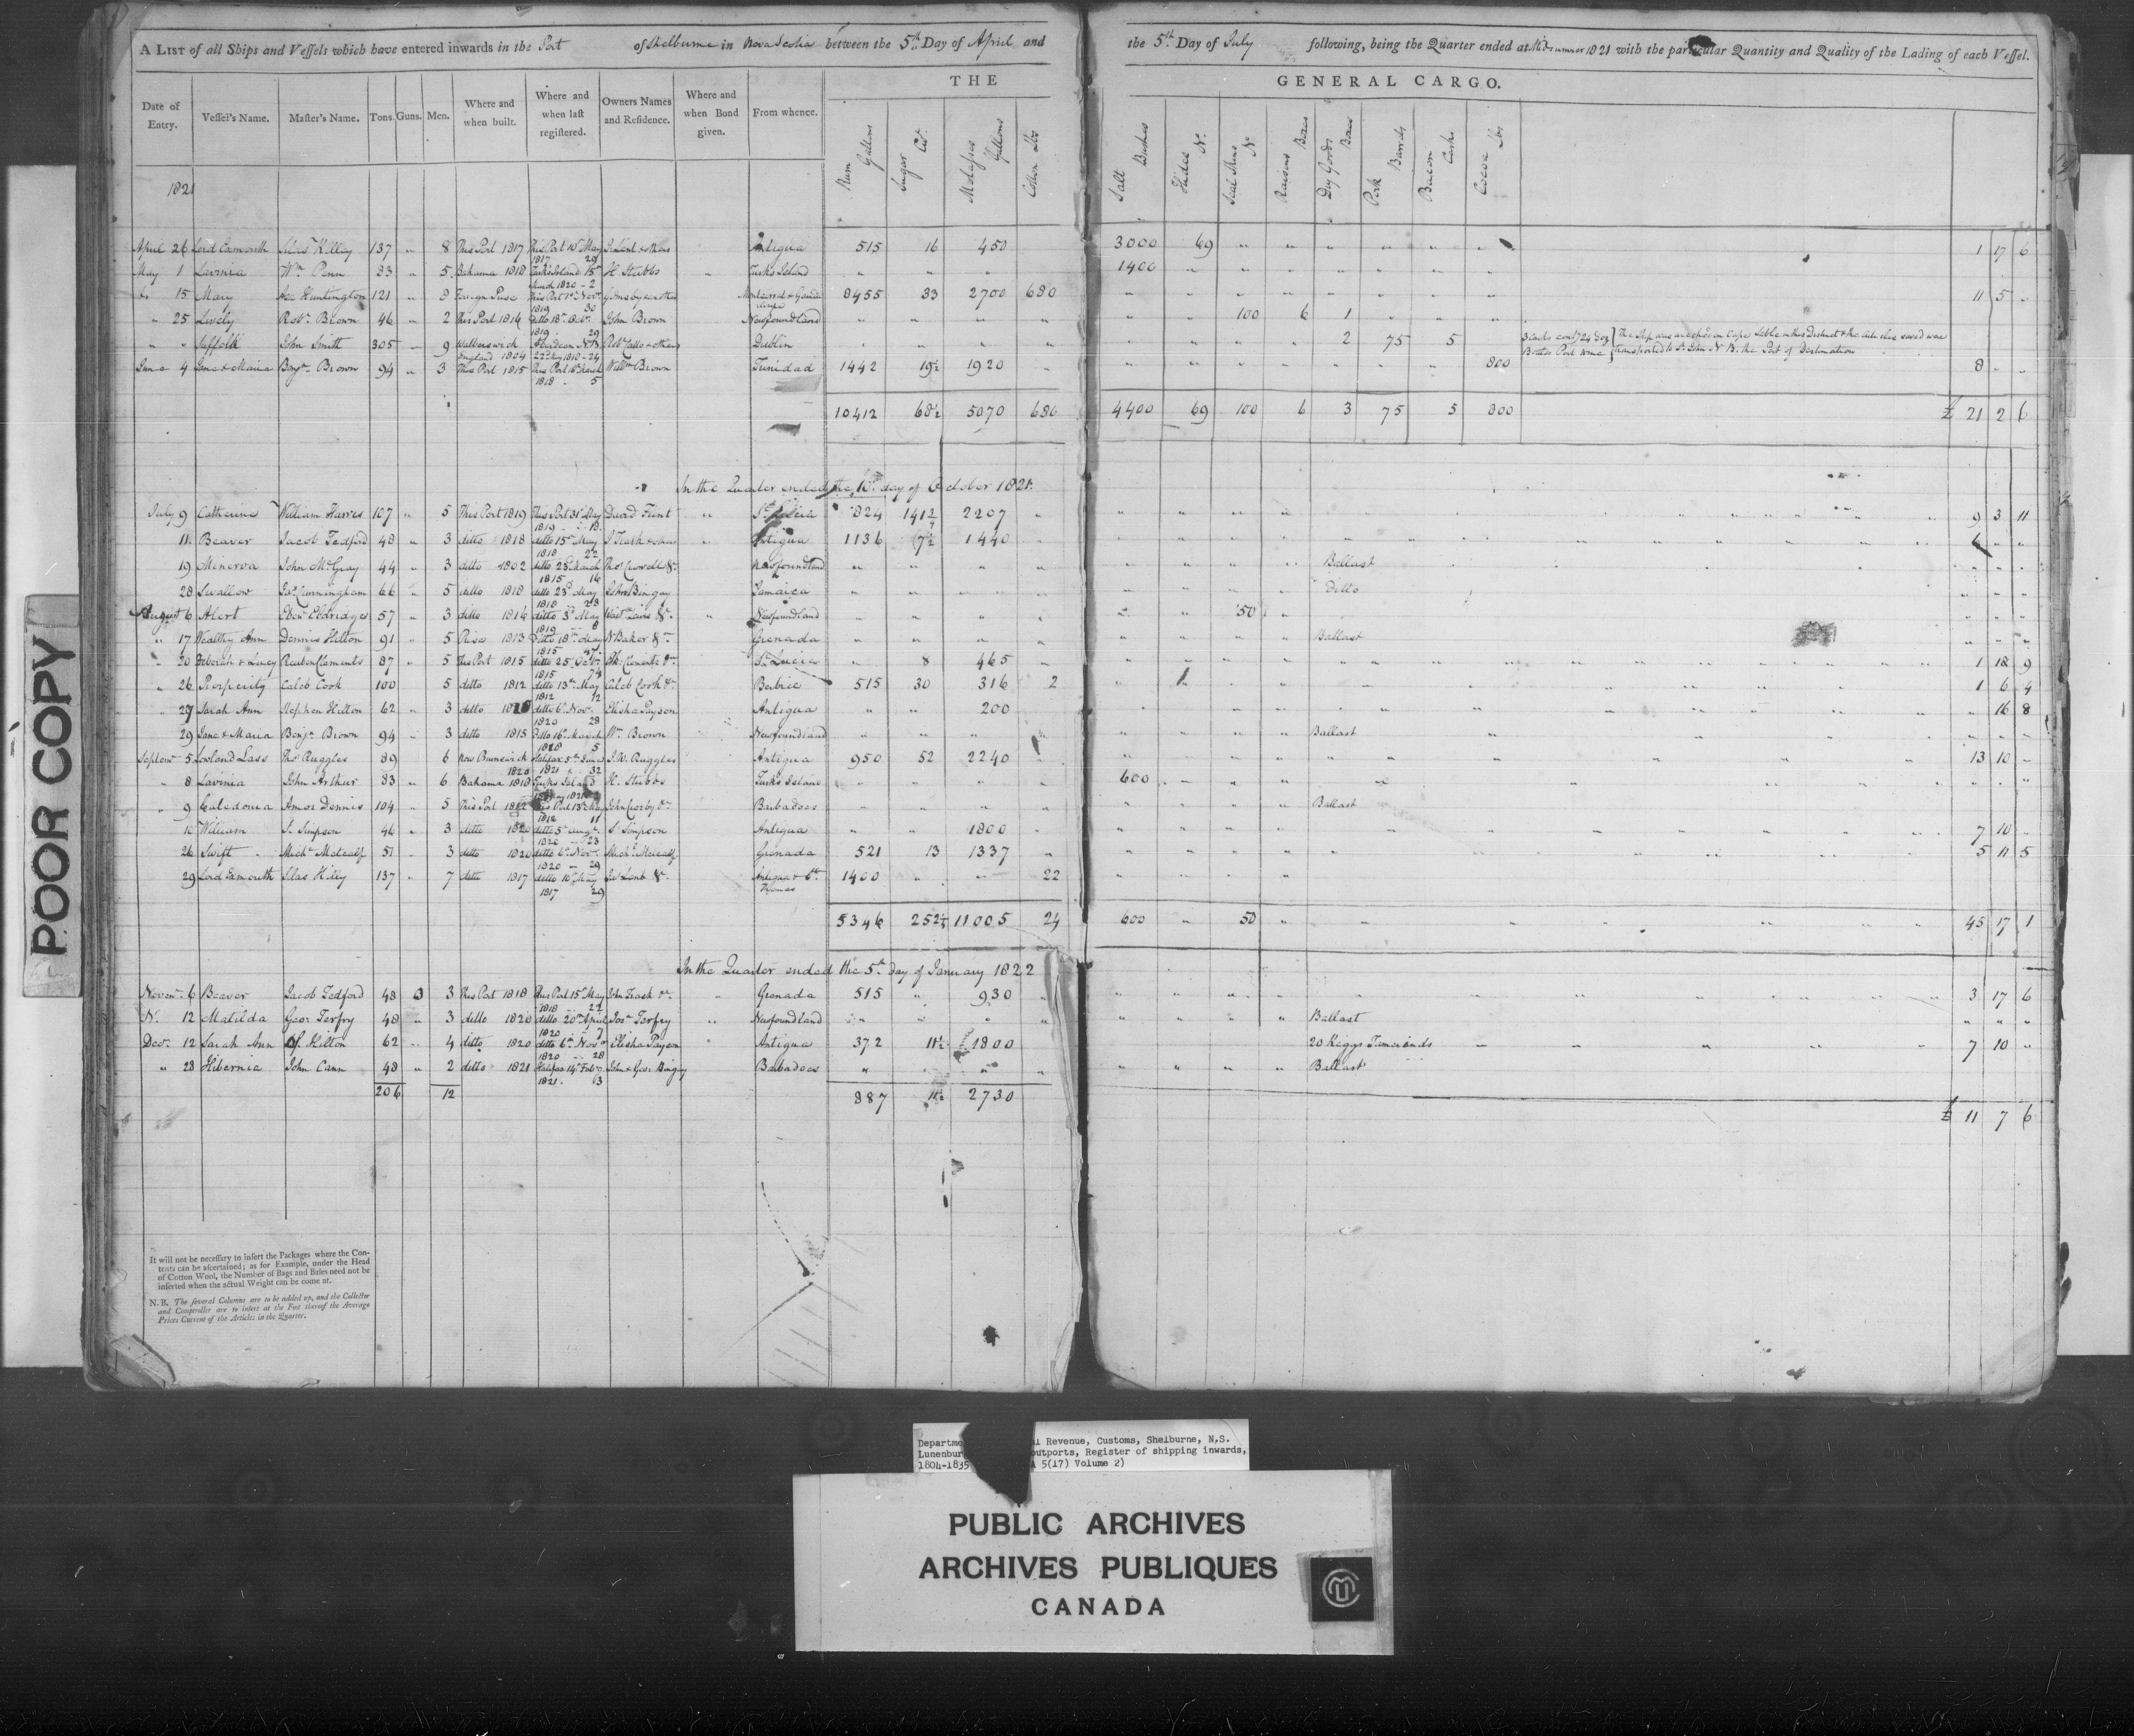 A LIST of all Ships and Vessels which have entered inwards in the Port of Shelburne in Nova Scotia between the 5th Day of April and the 5th Day of July following, being the Quarter ended at Midsummer 1821 with the particular Quantity and Quality of the Lading of each Vessel.
THE GENERAL CARGO.
Date of Entry. Vessel's Name. Master's Name. Tons. Guns. Men. Where and when built. Where and when last registered. Owners Names and Residence. Where and when Bond given. From whence. Rum Gallons Sugar Cwt. Molasses Gallons Cotton lbs Salt Bushes Hides No. Seal Skins No. Raisins Boxes Dry Goods Boxes Pork Barrels Bacon Casks Cocoa lbs
1821
April 26 Lord Exmouth Silas Killey 137 " 8 This Port 1817 This Port 10th May 1817 29 J. Lent & others Antigua 515 16 450 3000 69 " " " " " " 1 17 6
May 1 Lavinia Wm. Penn 83 " 5 Bahama 1818 Turks Island 15th 1820 - 2 H. Stubbs " Turks Island " " " 1400 " " " " " " "
15 Mary Huntington 121 " 8 Foreign Prize This Port 1st Novr. 1819 30 Montserrat & 8455 33 2700 680 " " " " " " " " 11 5 "
" 25 Lively Robt. Brown 46 " 2 This Port 1814 ditto 18th Octr. 1819 29 John Brown Newfoundland " " " " " " 100 6 1 " " "
" " Suffolk John Smith 305 " 9 Walberswick England 1804 Aberdeen N.B. 22d May 1810 - 24 & others Dublin " " " " " " " " 2 75 5 3 casks contg. Bottled Port Wine } The Ship was wrecked on Cape Sable in this District & the articles saved was transported to St John N B. the Port of Destination
June 4 Jane & Maria Benjn. Brown 94 " 3 This Port 1815 This Port 16th March 1818 - 5 Willm Brown Trinidad 1442 19½ 1920 " " " " " " " " 800 8 " "
10412 68½ 5070 680 4400 69 100 6 3 75 5 800 £ 21 2 6
In the Quarter ended the 10th day of October 1821.
July 9 Catherine William Harris 107 " 5 This Port 1819 This Port 31st May 1819 - 18 David Flint " St Lucia 824 141¾ 2207 " 9 3 11
11 Beaver Jacob Tedford 48 " 3 ditto 1818 ditto 15th May 1818 22 J Trask & others " Antigua 1136 7½ 1440 6 " "
19 Minerva John McGray 44 " 3 ditto 1802 ditto 25th March 1815 16 Thos. Crowell &c. Newfoundland " " " " Ballast
28 Swallow Jas. Cunningham 66 " 5 ditto 1818 ditto 23d May 1818 28 John Bingay Jamaica " " Ditto
August 6 Alert Eben Eldridge 57 " 3 ditto 1816 ditto 3d May 1819 8 &c. " Newfoundland " " " " " 50 "
" 17 Wealthy Ann Dennis Hilton 91 " 5 Prize 1813 Ditto 18th May 1815 47 N Baker &c Grenada " " " Ballast
" 20 Deborah & Lucy Reuben Clements 87 " 5 This Port 1815 ditto 25 Octr. 1815 74 Clements &c. St. Lucia " 8 465 " 1 18 9
" 26 Prosperity Caleb Cook 100 5 ditto 1812 ditto 13th May 1812 12 Caleb Cook &c. Berbice 515 30 316 2 1 6 4
" 27 Sarah Ann Stephen Hilton 62 " 3 ditto ditto 6th Nov. 1820 28 Elisha Payson Antigua " " 200 " 16 8
29 Jane & Maria Benjn. Brown 94 " 3 ditto 1815 Ditto 16th March 1818 5 Wm. Brown Newfoundland " " " Ballast
Septemr 5 Lowland Lass Thos Ruggles 89 6 New Brunswick 1820 Halifax 5th June 1821 32 J. W. Ruggles Antigua 950 52 2240 " 13 10 "
" 8 Lavinia John Arthur 83 " 6 Bahama 1818 Turks Island May 1821 H. Stubbs Turks Island " " " " 600 "
" 9 Caledonia Amos Dennis 104 " 5 This Port 1812 This Port 13th May 1812 11 John Crosby &c Barbadoes " " " " Ballast
10 William S. Simpson 46 " 3 ditto 1820 ditto 5th Augt. 1820 - 23 S. Simpson Antigua " " 1800 " 7 10 "
26 Swift Michl. Metcalf 51 " 3 ditto 1820 ditto 6th Nov. 1820 - 29 Michl. Metcalf Grenada 521 13 1337 " 5 11 5
29 Lord Exmouth Silas Killy 137 " 7 ditto 1817 ditto 10th May 1817 29 Js. Lent &c. Antigua & St. Thomas 1400 " " 22
5346 252¼ 11005 24 600 " 50 " 45 17 1
In the Quarter ended the 5th day of January 1822
Novemr. 6 Beaver Jacob Tedford 48 0 3 This Port 1818 This Port 15th May 1818 - 22 John Trask &c. " Grenada 515 " 930 " 3 17 6
12 Matilda Geor Terfry 48 " 3 ditto 1820 ditto 20th April 1820 - 7 Terfry " Newfoundland " " " Ballast " " "
Decr. 12 Sarah Ann Hilton 62 " 4 ditto 1820 ditto 6th Novr 1820 28 Elisha Payson Antigua 372 11½ 1800 20 Keggs Tamarinds 7 10 "
" 28 Hibernia John Cann 48 " 2 ditto 1821 Halifax 14th Feby. 1821. 63 John & Geor Bingay Barbadoes " " " " Ballast
206 12 887 11½ 2730 £ 11 7 6
It will not be necessary to insert the Packages where the Con-
tents can be ascertained; as for Example, under the Head
of Cotton Wool, the Number of Bags and Bales need not be
inserted when the actual Weight can be come at.
N.B. The several Columns are to be added up, and the Collector
and Comptroller are to insert at the Foot thereof the Average
Prices Current of the Articles in the Quarter.
POOR COPY
Revenue, Customs, Shelburne, N.S.
outports, Register of shipping inwards,
1804-1835 5(17) Volume 2)
PUBLIC ARCHIVES
ARCHIVES PUBLIQUES
CANADA